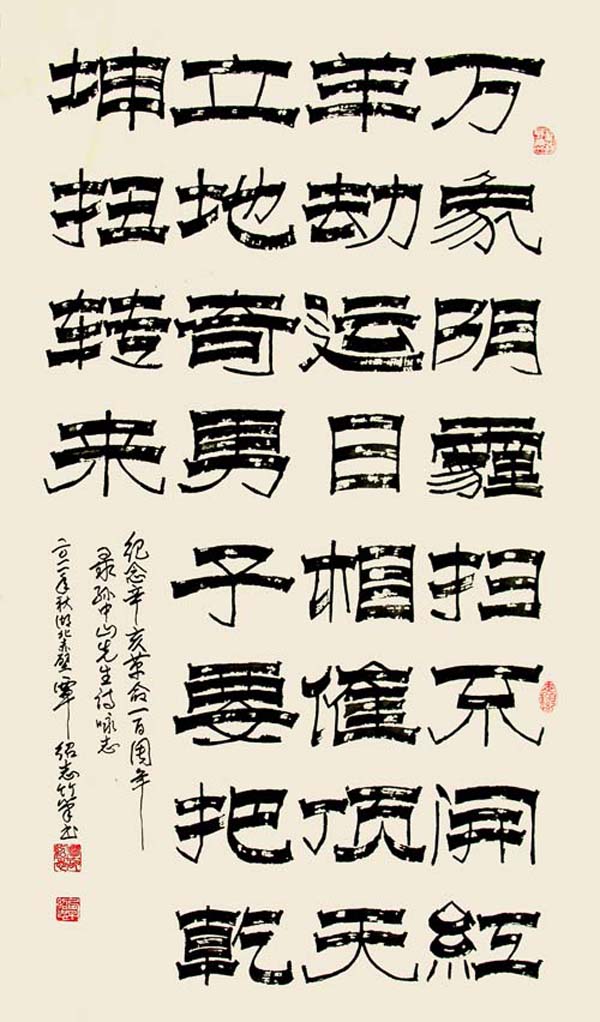 万象阴霾扫不開红
羊劫运日相催顶天
立地奇男子要把乾
坤扭转来
纪念辛亥革命一百周年
录孙中山先生诗咏志
二〇一一年秋湖北赤壁覃绍志竹笔书